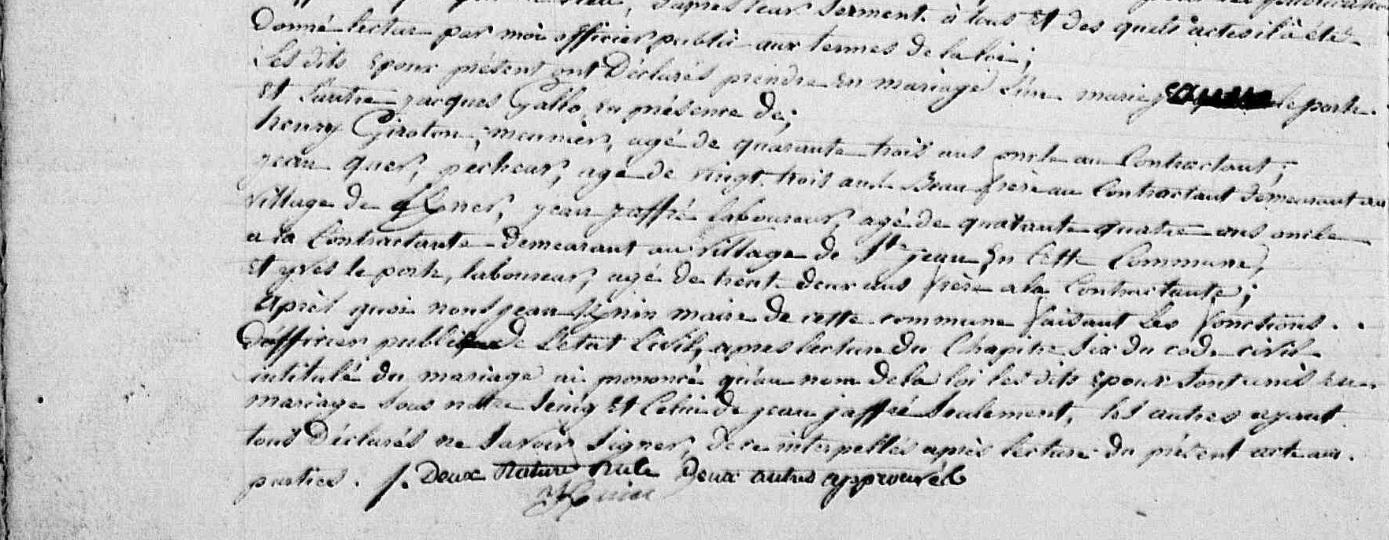 , d'après leur serment à tous Et des quels actes il a été
Donné lecture par moi officier public aux termes de la loi ;
Les dits Epoux présent ont Déclarés prendre En mariage L'une marie le porte
Et Lautre jacques Gallo, En présence de ;
henry Giroton, meunier, agé de quarante trois ans oncle au Contractant ;
jean quer, pecheur, agé de vingt trois ans Beau frère au Contractant demeurant au
village de jean jaffré laboureur, agé de quarante quatre ans oncle
a la Contractante demeurant au village de St jean En Cette Commune,
Et yves le porte, laboureur, agé de trent deux ans frère a la Contractante ;
Après quoi nous jean maire de cette commune faisant Les fonctions
D'officier public de Letat Civil, apres lecture du Chapitre Six du code civil
intitulé du mariage ai prononcé qu'au nom de la loi les dits Epoux sont unis En
mariage sous notre Seing Et Celui de jean jaffré Seulement, les autres ayant
tous Déclarés ne Savoir Signer, de ce interpellés après lecture du présent acte aux
parties . /. Deux rature nule Deux autres approuvés